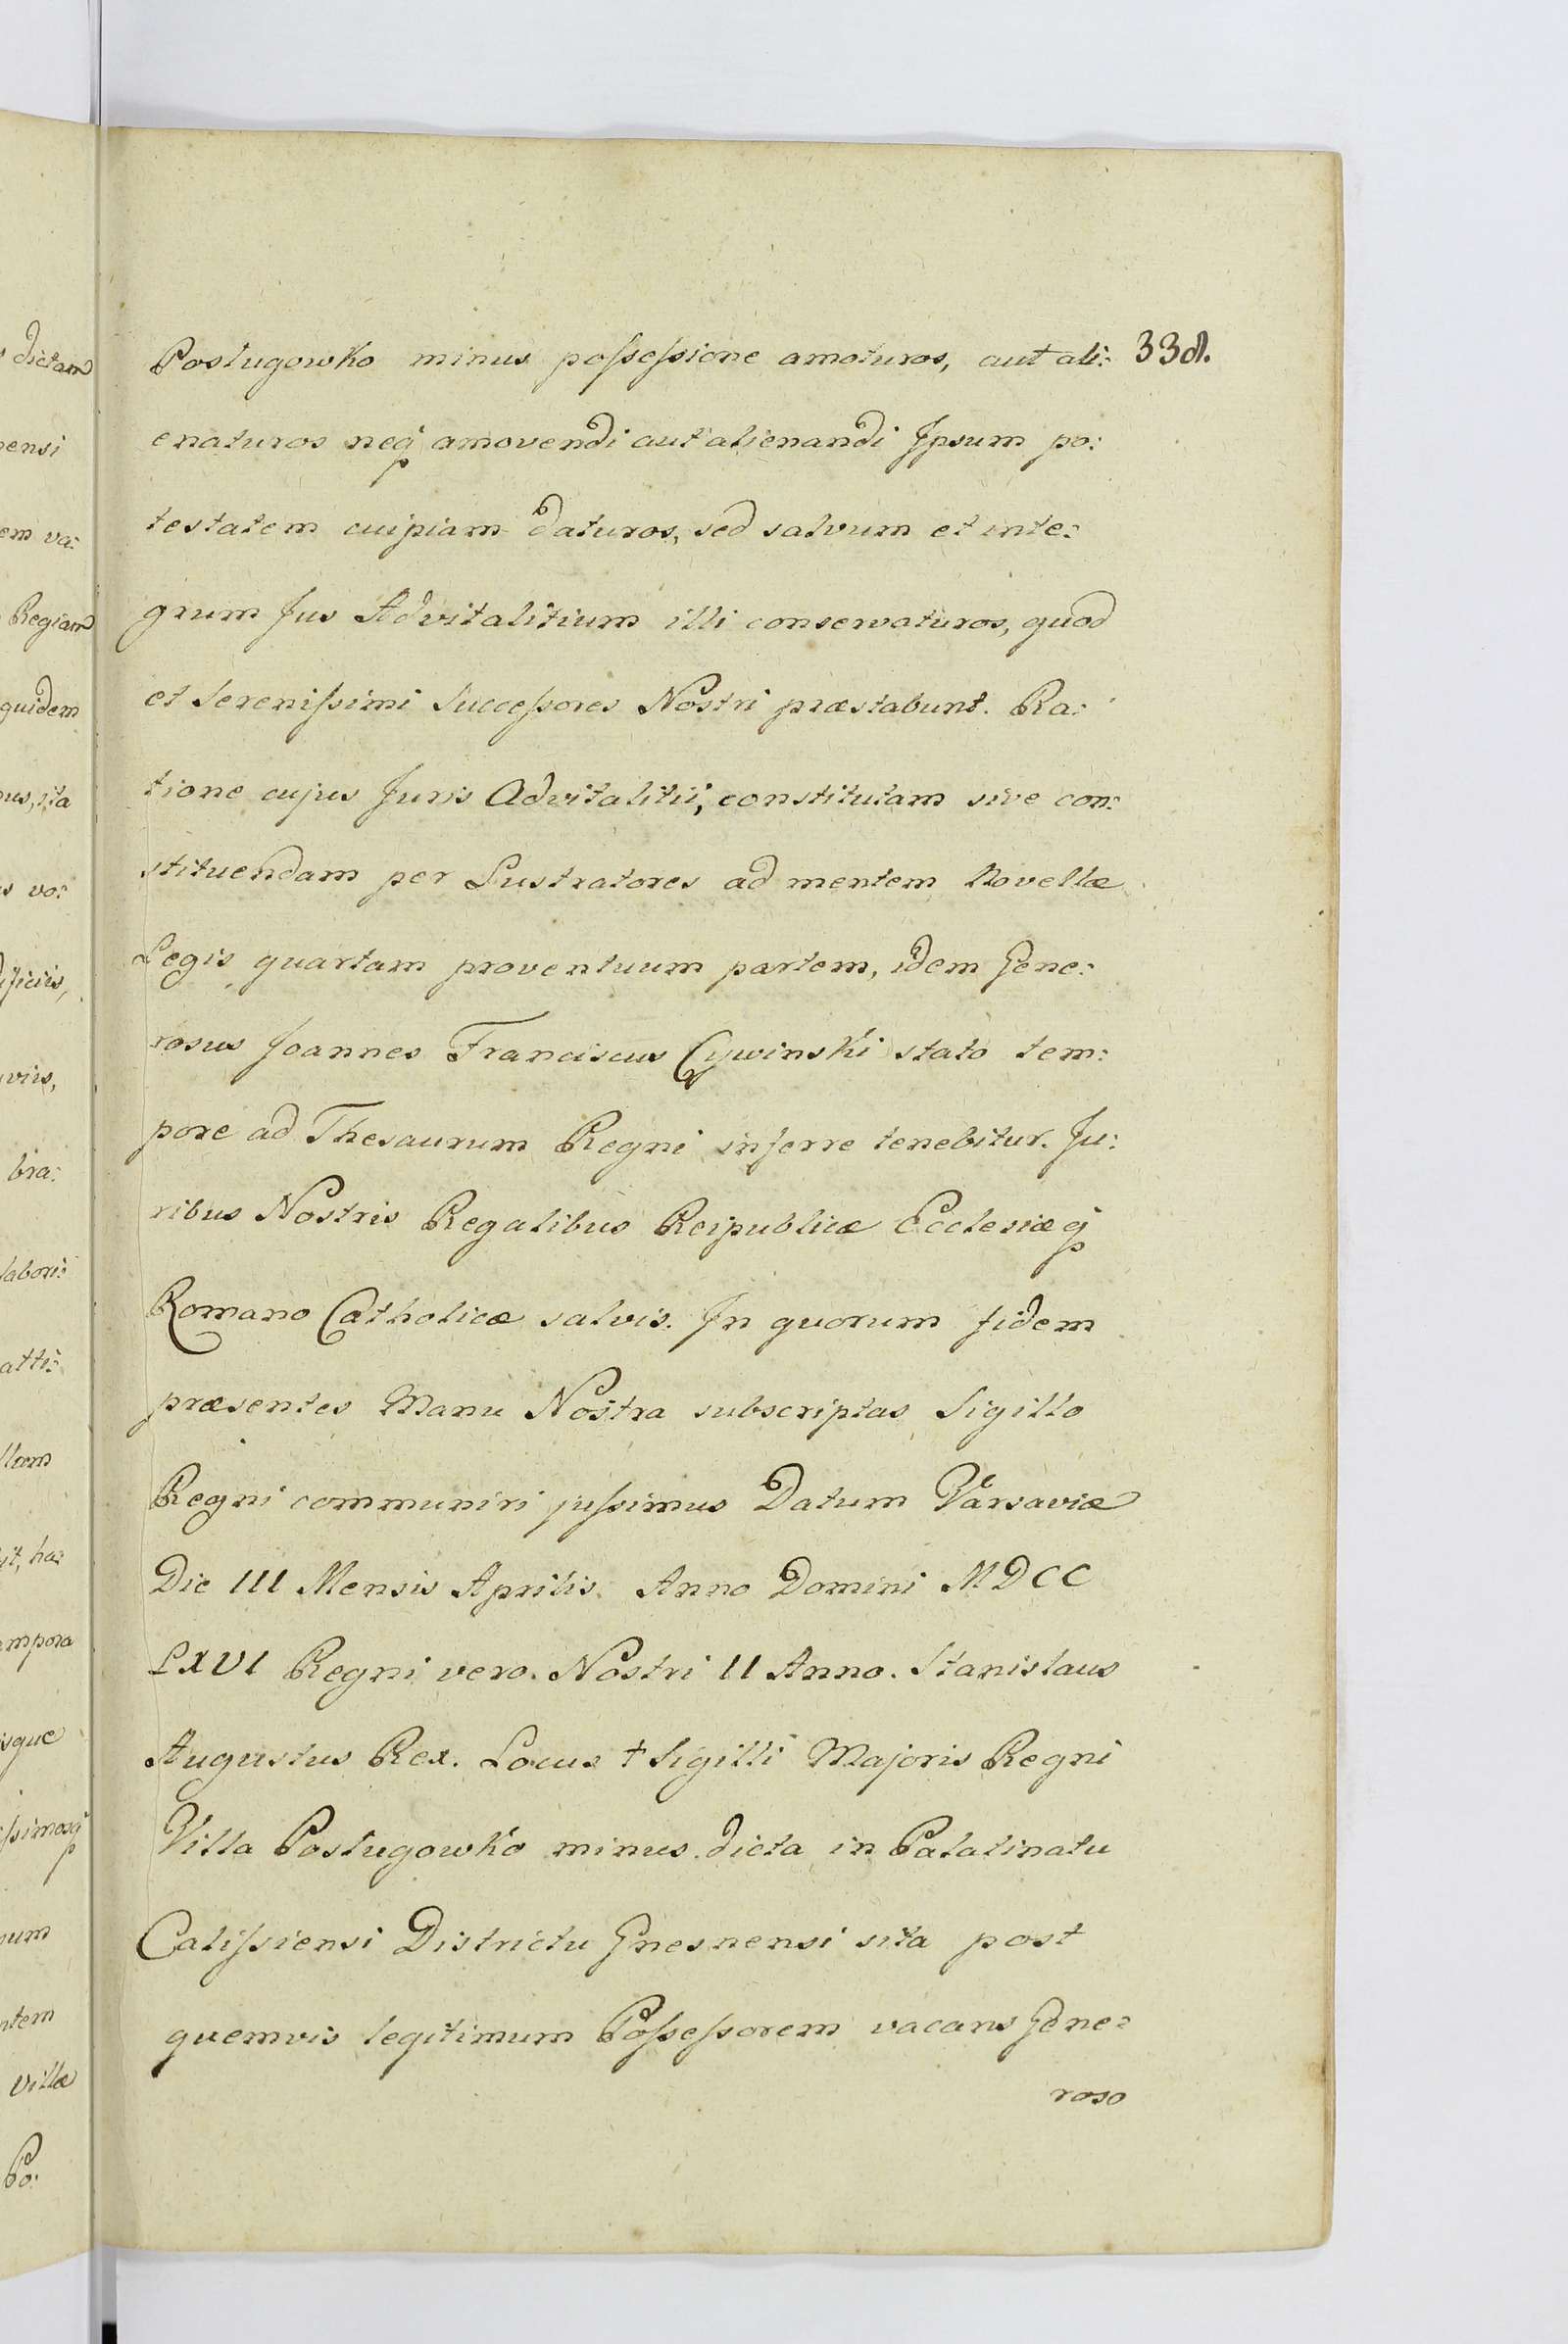 338.
Postugowko minus poſseſsione amoturos, aut ali:
enaturos neq; amovendi aut alienandi Ipsum po:
testatem cuipiam daturos, sed salvum et inte:
grum Jus Advitalitium illi conservaturos, quod
et Sereniſsimi Succeſsores Nostri præstabunt. Ra:
tione cujus Juris Advitalitii, constitutam sive con:
stituendam per Lustratores ad mentem Novellæ
Legis quartam proventuum partem, idem Gene:
rosus Joannes Franciscus Cywinski stato tem:
pore ad Thesaurum Regni inferre tenebitur. Ju:
ribus Nostris Regalibus Reipublicæ Ecclesiæq;
Romano Catholicæ salvis. In quorum fidem
præsentes Manu Nostra subscriptas Sigillo
Regni communiri juſsimus Datum Varsaviæ
Die III Mensis Aprilis Anno Domini MDCC
LXVI Regni vero Nostri II Anno. Stanislaus
Augustus Rex. Locus † Sigilli Majoris Regni
Villa Postugowko minus dicta in Palatinatu
Caliſsiensi Districtu Gnesnensi sita post
quemvis legitimum Poſseſsorem vacans Gene:
roso
dictam
ensi
em va:
Regiam
quidem
us, ita
s vo:
ficiis,
viis,
bra:
labori:
atti:
llam
it, ha:
mpora
sque
ſsimosq;
um
ntem
villæ
Po: